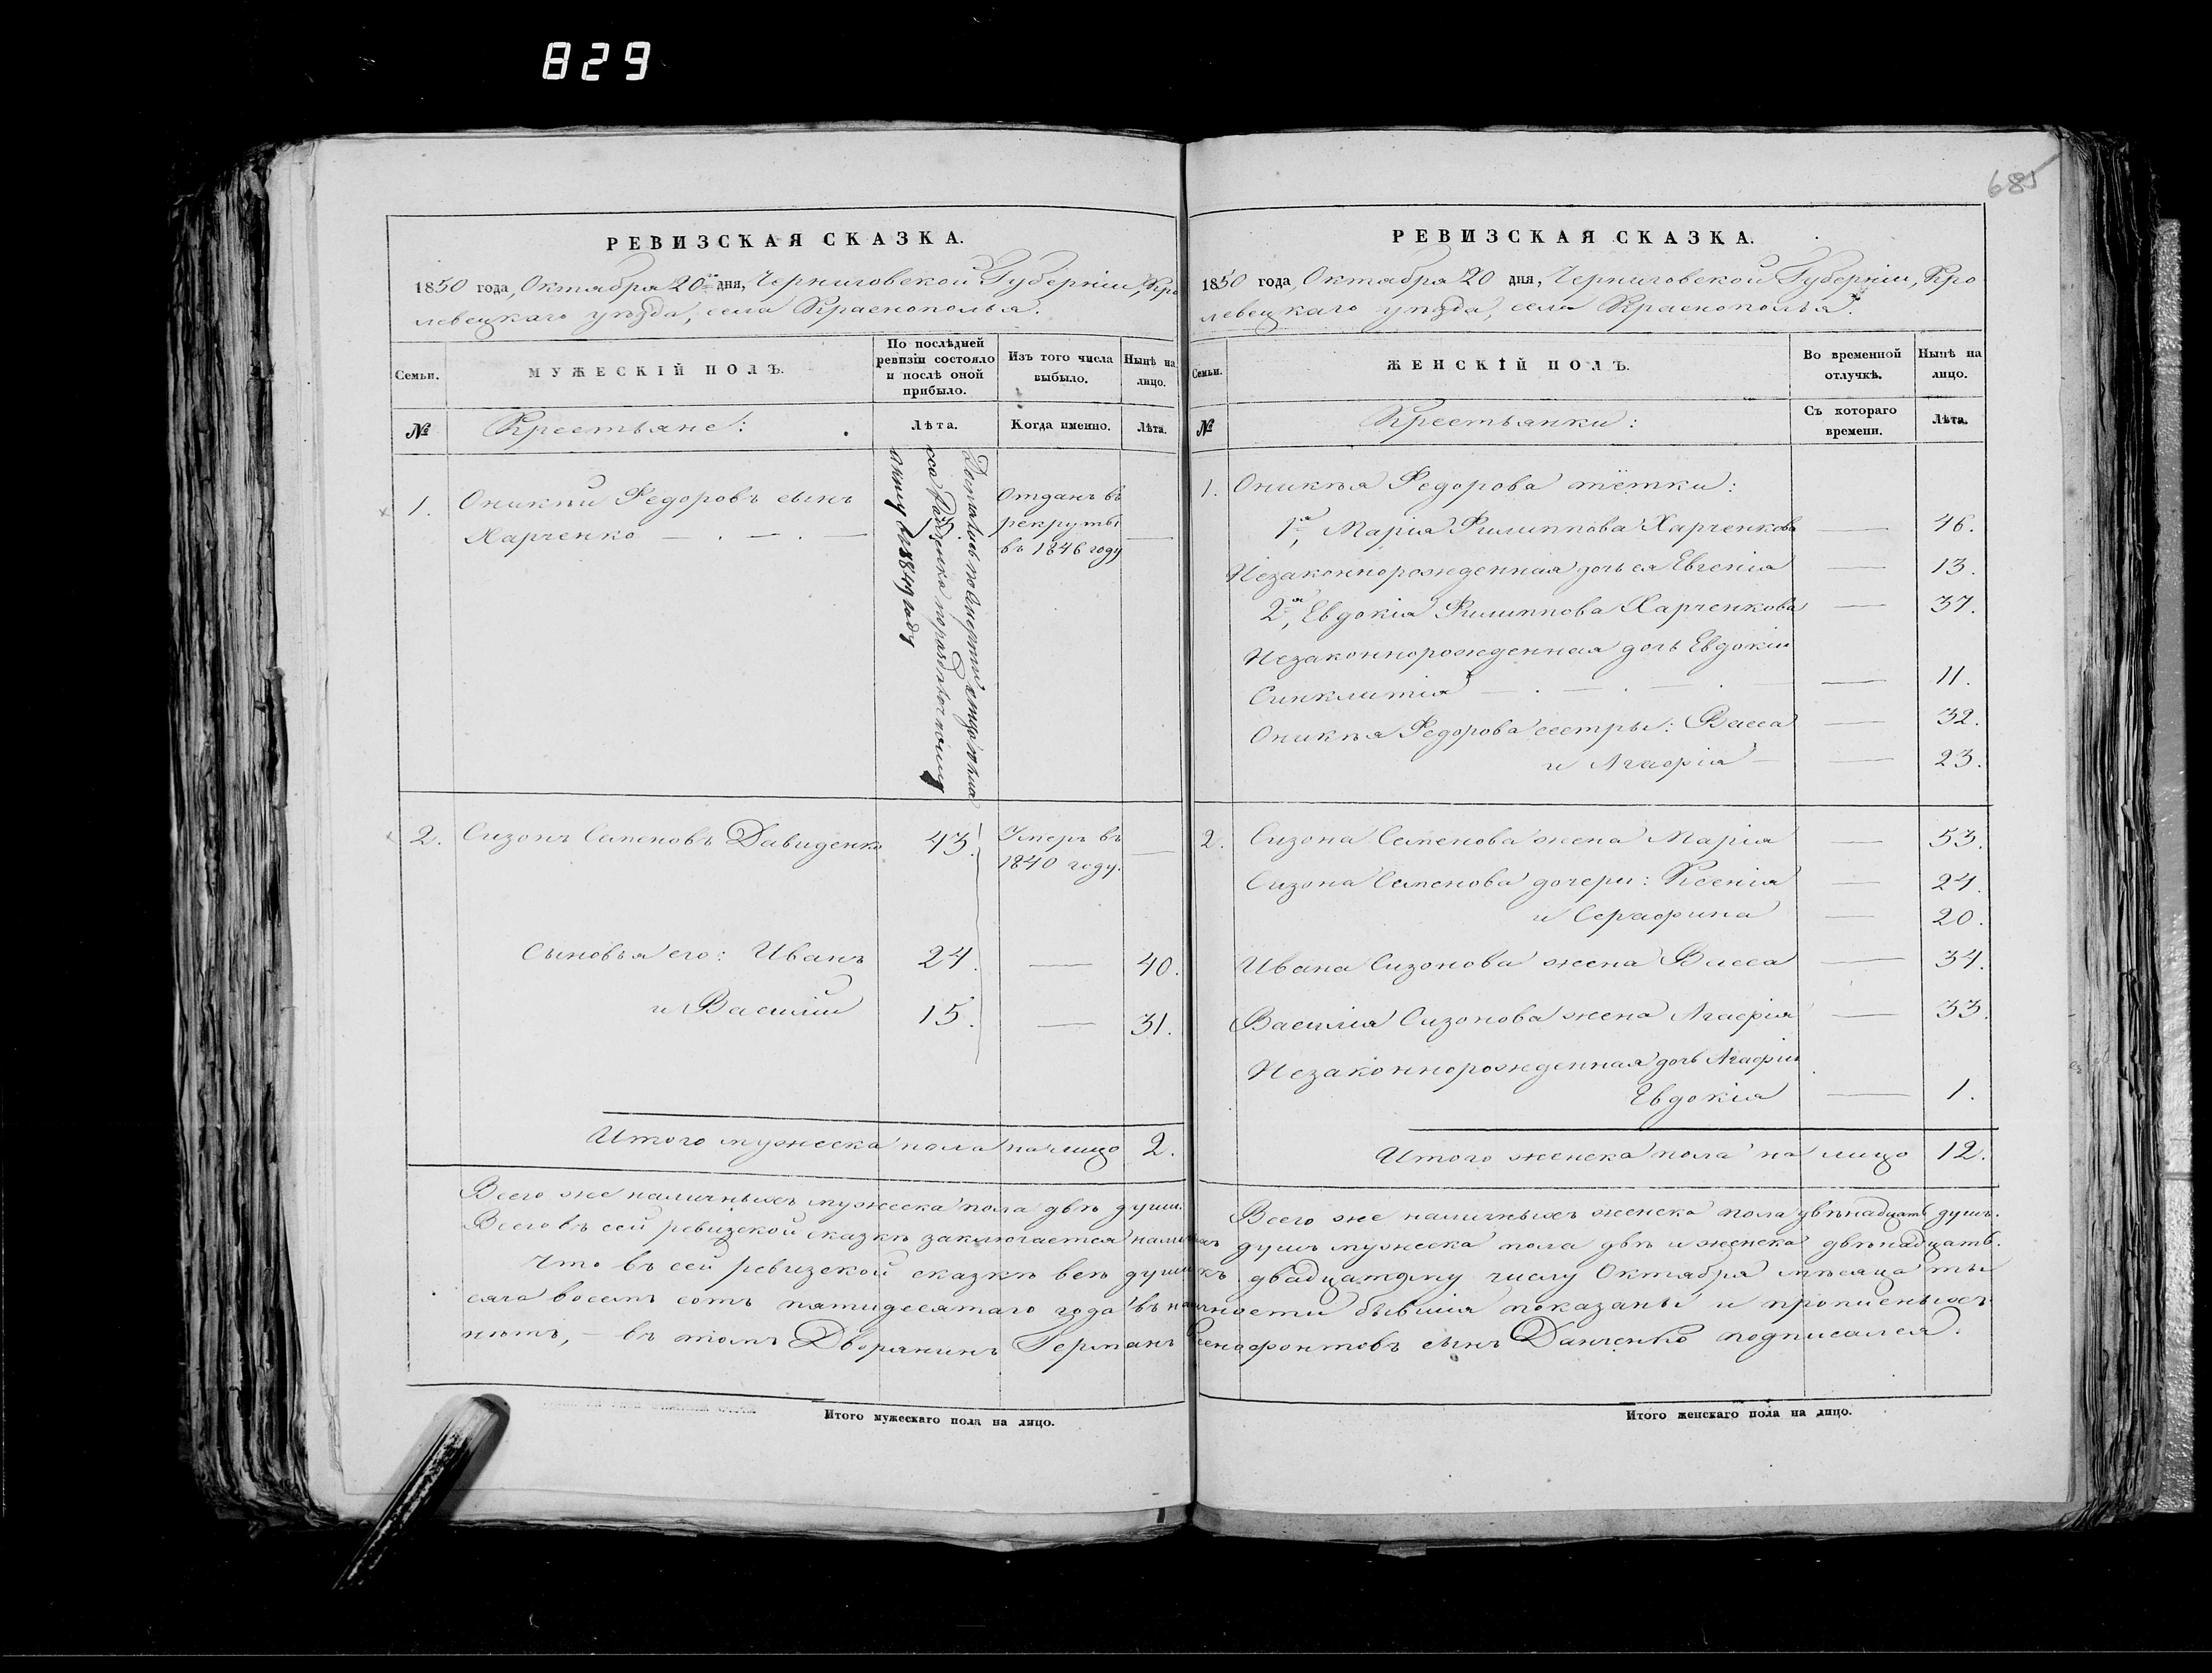 829
685
РЕВИЗСКАЯ СКАЗКА.
1850 года, Октября 20го дня, Черниговской Губерніи, Кро
левецкаго уѣзда, села Краснополья.
Семьи.
МУЖЕСКІЙ ПОЛЪ.
По послѣдней ревизіи состояло и послѣ оной прибыло.
Изъ того числа выбыло.
Нынѣ на лицо.
№
Крестьяне:
Лѣта.
Когда именно.
Лѣта.
1. Оникѣй Федоровъ сынъ
Харченко
Отданъ въ
рекруты
въ 1846 году
Достались по смерти отца
по раздѣлу
году
2. Сизонъ Семеновъ Давиденко 43. Умеръ въ
1840 году.
Сыновья его: Иванъ 24. — 40.
и Василій 15. — 31.
Итого мужеска пола на лицо 2.
Всего же наличныхъ мужеска пола двѣ души.
РЕВИЗСКАЯ СКАЗКА.
1850 года, Октября 20 дня, Черниговской Губерніи, Кро
левецкаго уѣзда, села Краснополья.
Семьи.
ЖЕНСКІЙ ПОЛЪ.
Во временной отлучкѣ.
Нынѣ на лицо.
№
Крестьянки:
Съ котораго времени.
Лѣта.
1. Оникѣя Федорова тётки:
1я, Марія Филиппова Харченкова — 46.
Незаконнорожденная дочь ея Евгенія — 13.
2я, Евдокія Филиппова Харченкова — 37.
Незаконнорожденная дочь Евдокіи
Синклитія — 11.
Оникѣя Федорова сестры: Васса — 32.
и Агафія — 23.
2. Сизона Семенова жена Марія — 53.
Сизона Семенова дочери: Ксенія — 24.
и Серафима — 20.
Ивана Сизонова жена Васса — 34.
Василія Сизонова жена Агафія — 33.
Незаконнорожденная дочь Агафіи
Евдокія — 1.
Итого женска пола на лицо 12.
Всего же наличныхъ женска пола двѣнадцать душъ.
Всего въ сей ревизской сказкѣ заключается наличныхъ душъ мужеска пола двѣ и женска двѣнадцать.
Что въ сей ревизской сказкѣ всѣ души къ двадцатому числу Октября мѣсяца ты
сяча восемь сотъ пятидесятаго года въ наличности бывшія показаны и прописныхъ
нѣтъ, — въ томъ Дворянинъ Германъ Ксенофонтовъ сынъ Данченко подписался.
Итого мужескаго пола на лицо.
Итого женскаго пола на лицо.